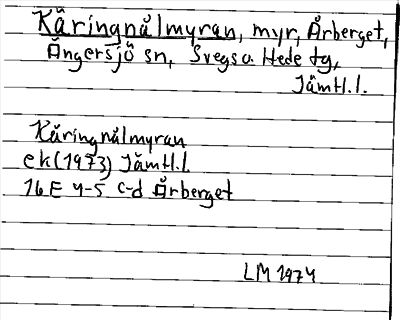 Käringnålmyran, myr, Årberget,
Ängersjö sn, Svegs o. Hede tg,
Jämtl.l.
Käringnålmyran
ek (1973) Jämtl.l.
16E 4-5 c-d Årberget
LM 1974